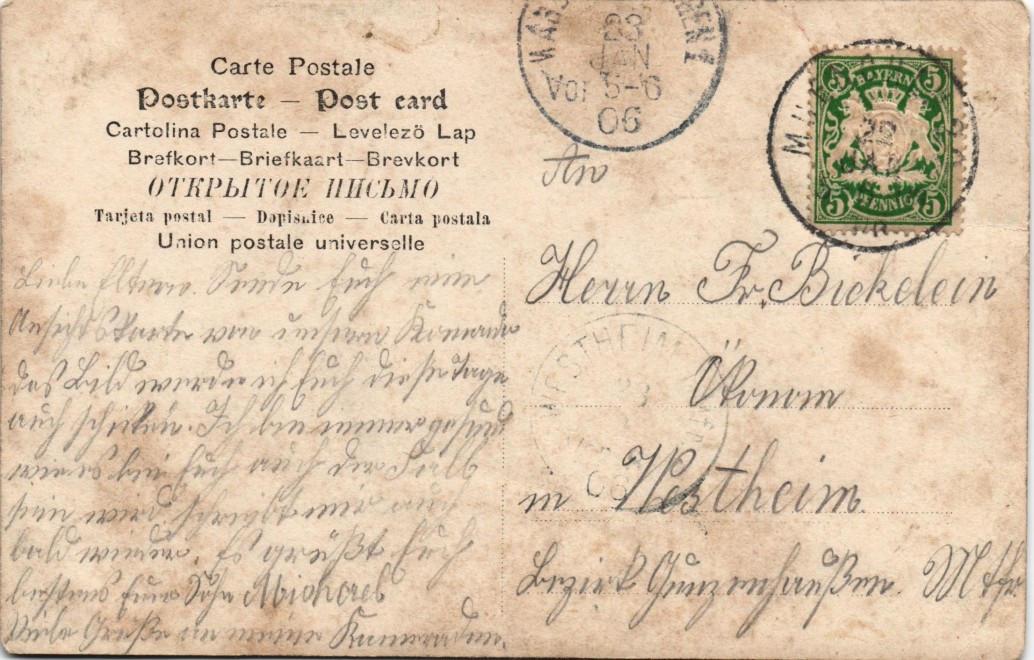 Carte Postale
Postkarte — Post card
Cartolina Postale — Levelezö Lap
Brefkort—Briefkaart—Brevkort
ОТКРЫТОЕ ПИСЬМО
Tarjeta postal — Dopisnice — Carta postala
Union postale universelle
23
JAN
5-6
06
BAYERN
5 5
5 PFENNIG 5
An
Herrn Fr. Bickelein
Ökonom
in Westheim.
Bezirk Gunzenhaußen. Mttfr.
WESTHEIM
23
06
Liebe Eltern. Sende Euch eine
Ansichtskarte von unseren
das Bild werde ich Euch diese Tage
auch schicken. Ich bin immer gesund
wie es bei Euch auch der Fall
sein wird schreibt mir nur
bald wieder. Es grüßt Euch
bestens Euer Sohn Michael
Viele Grüße an meine Kameraden.